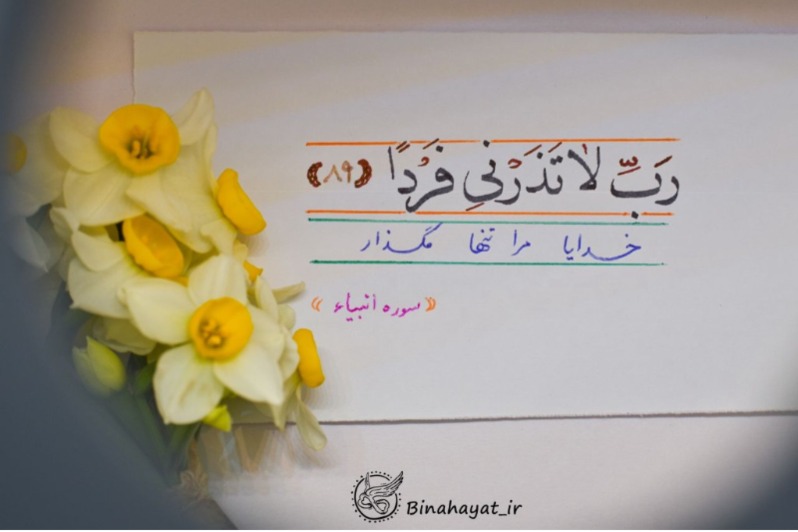 رَبِّ لَا تَذَرْنِي فَرْدًا ﴿۸۹﴾
خدایا مرا تنها مگذار
«سوره انبیاء»
Binahayat_ir